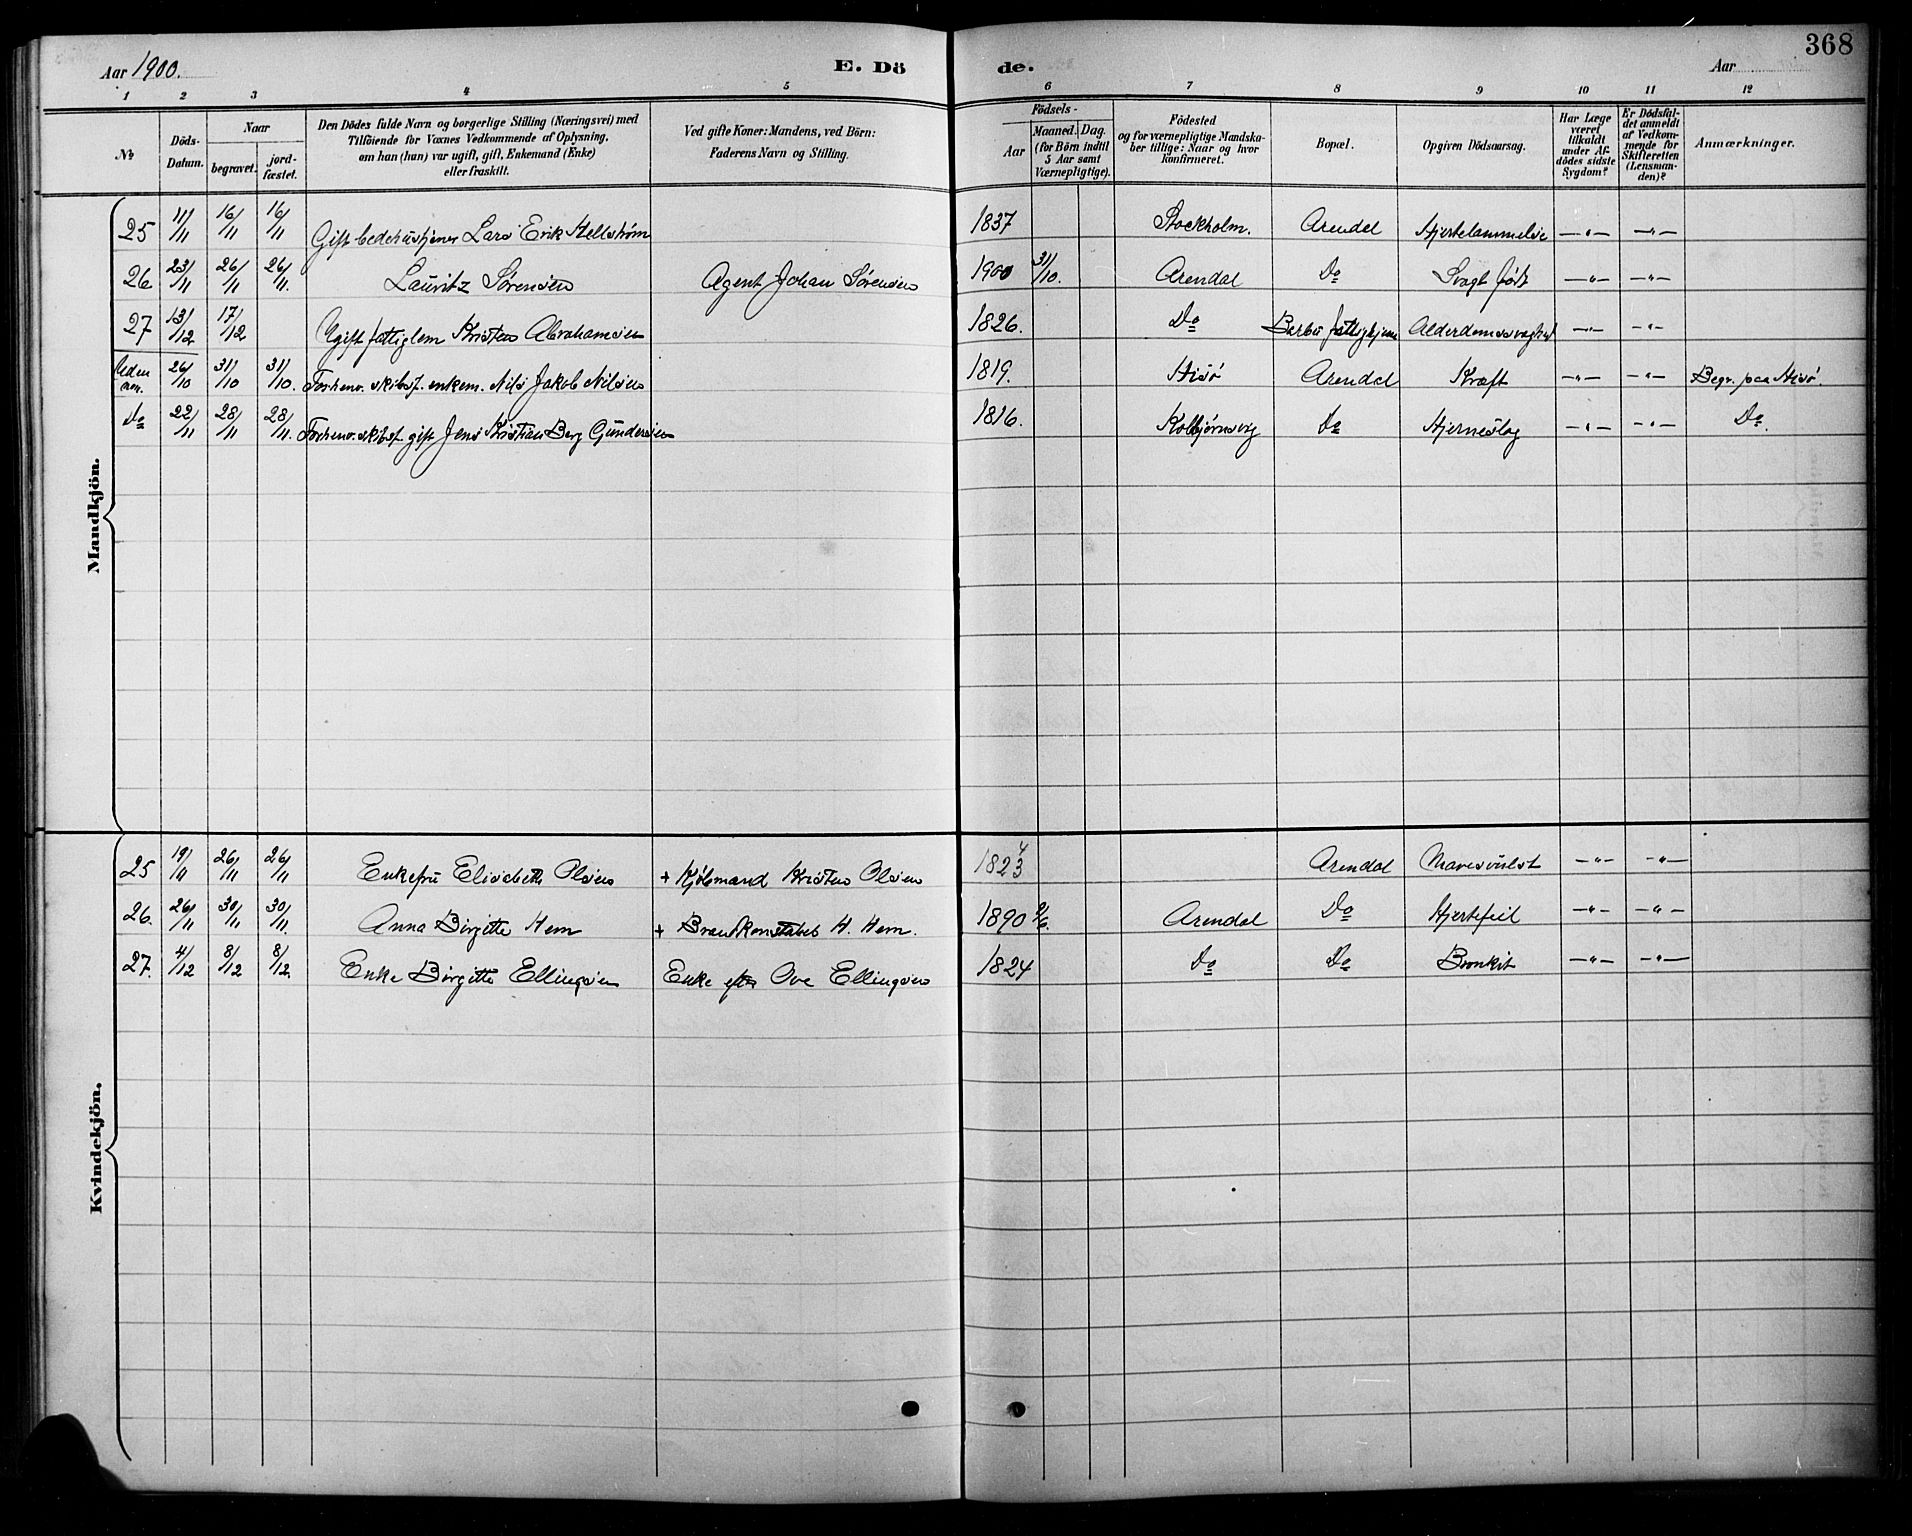 368
Aar 1900.
E. Dö de.
Aar
1 2 3 4 5 6 7 8 9 10 11 12
№
Döds-Datum.
Naar
begravet.
jord-fæstet.
Den Dödes fulde Navn og borgerlige Stilling (Næringsvei) med
Tilföiende for Voxnes Vedkommende af Oplysning,
om han (hun) var ugift, gift, Enkemand (Enke)
eller fraskilt.
Ved gifte Koner: Mandens, ved Börn:
Faderens Navn og Stilling.
Födsels-
Aar
Maaned. Dag.
(for Börn indtil
5 Aar samt
Værnepligtige).
Födested
og for værnepligtige Mandska-
ber tillige: Naar og hvor
konfirmeret.
Bopæl.
Opgiven Dödsaarsag.
Har Læge
været
tilkaldt
under Af-
dödes sidste
Sygdom?
Er Dödsfal-
det anmeldt
af Vedkom-
mende for
Skifteretten
(Lensman-
den)?
Anmærkninger.
Mandkjön.
25 11/11 16/11 16/11 Gift bedehustjener Lars Erik Hellstrøm 1837 Stockholm. Arendal Hjertelammelse —"— —"—
26 23/11 26/11 26/11. Lauritz Sørensen Agent Johan Sørensen 1900 31/10. Arendal Do Svagt født —"— —"—
27 13/12 17/12 Ugift fattiglem Kristen Abrahamsen 1826. Do Barbu fattighjem Alderdomssvaghed —"— —"—
26/10 31/10 31/10. Forhenv. skibsf. enkem. Nils Jakob Nilsen 1819. Hisø Arendal Kræft —"— —"— Begr. paa Hisø.
Do 22/11 28/11 28/11. Forhenv. skibsf. gift Jens Kristian Berg Gundersen 1816. Kolbjørnsvig Do Hjerneslag —"— —"— Do.
Kvindekjön.
25 19/11 26/11 26/11 Enkefru Elisabeth Olsen + Kjøbmand Kristen Olsen 1823 4 Arendal Mavesvulst —"— —"—
26. 26/11 30/11 30/11 Anna Birgitte Hem + Brandkonstabel H. Hem. 1890 Arendal Do Hjertefeil —"— —"—
27. 4/12 8/12 8/12 Enke Birgitte Ellingsen Enke efter Ove Ellingsen 1824 Do Do Bronkit —"— —"—